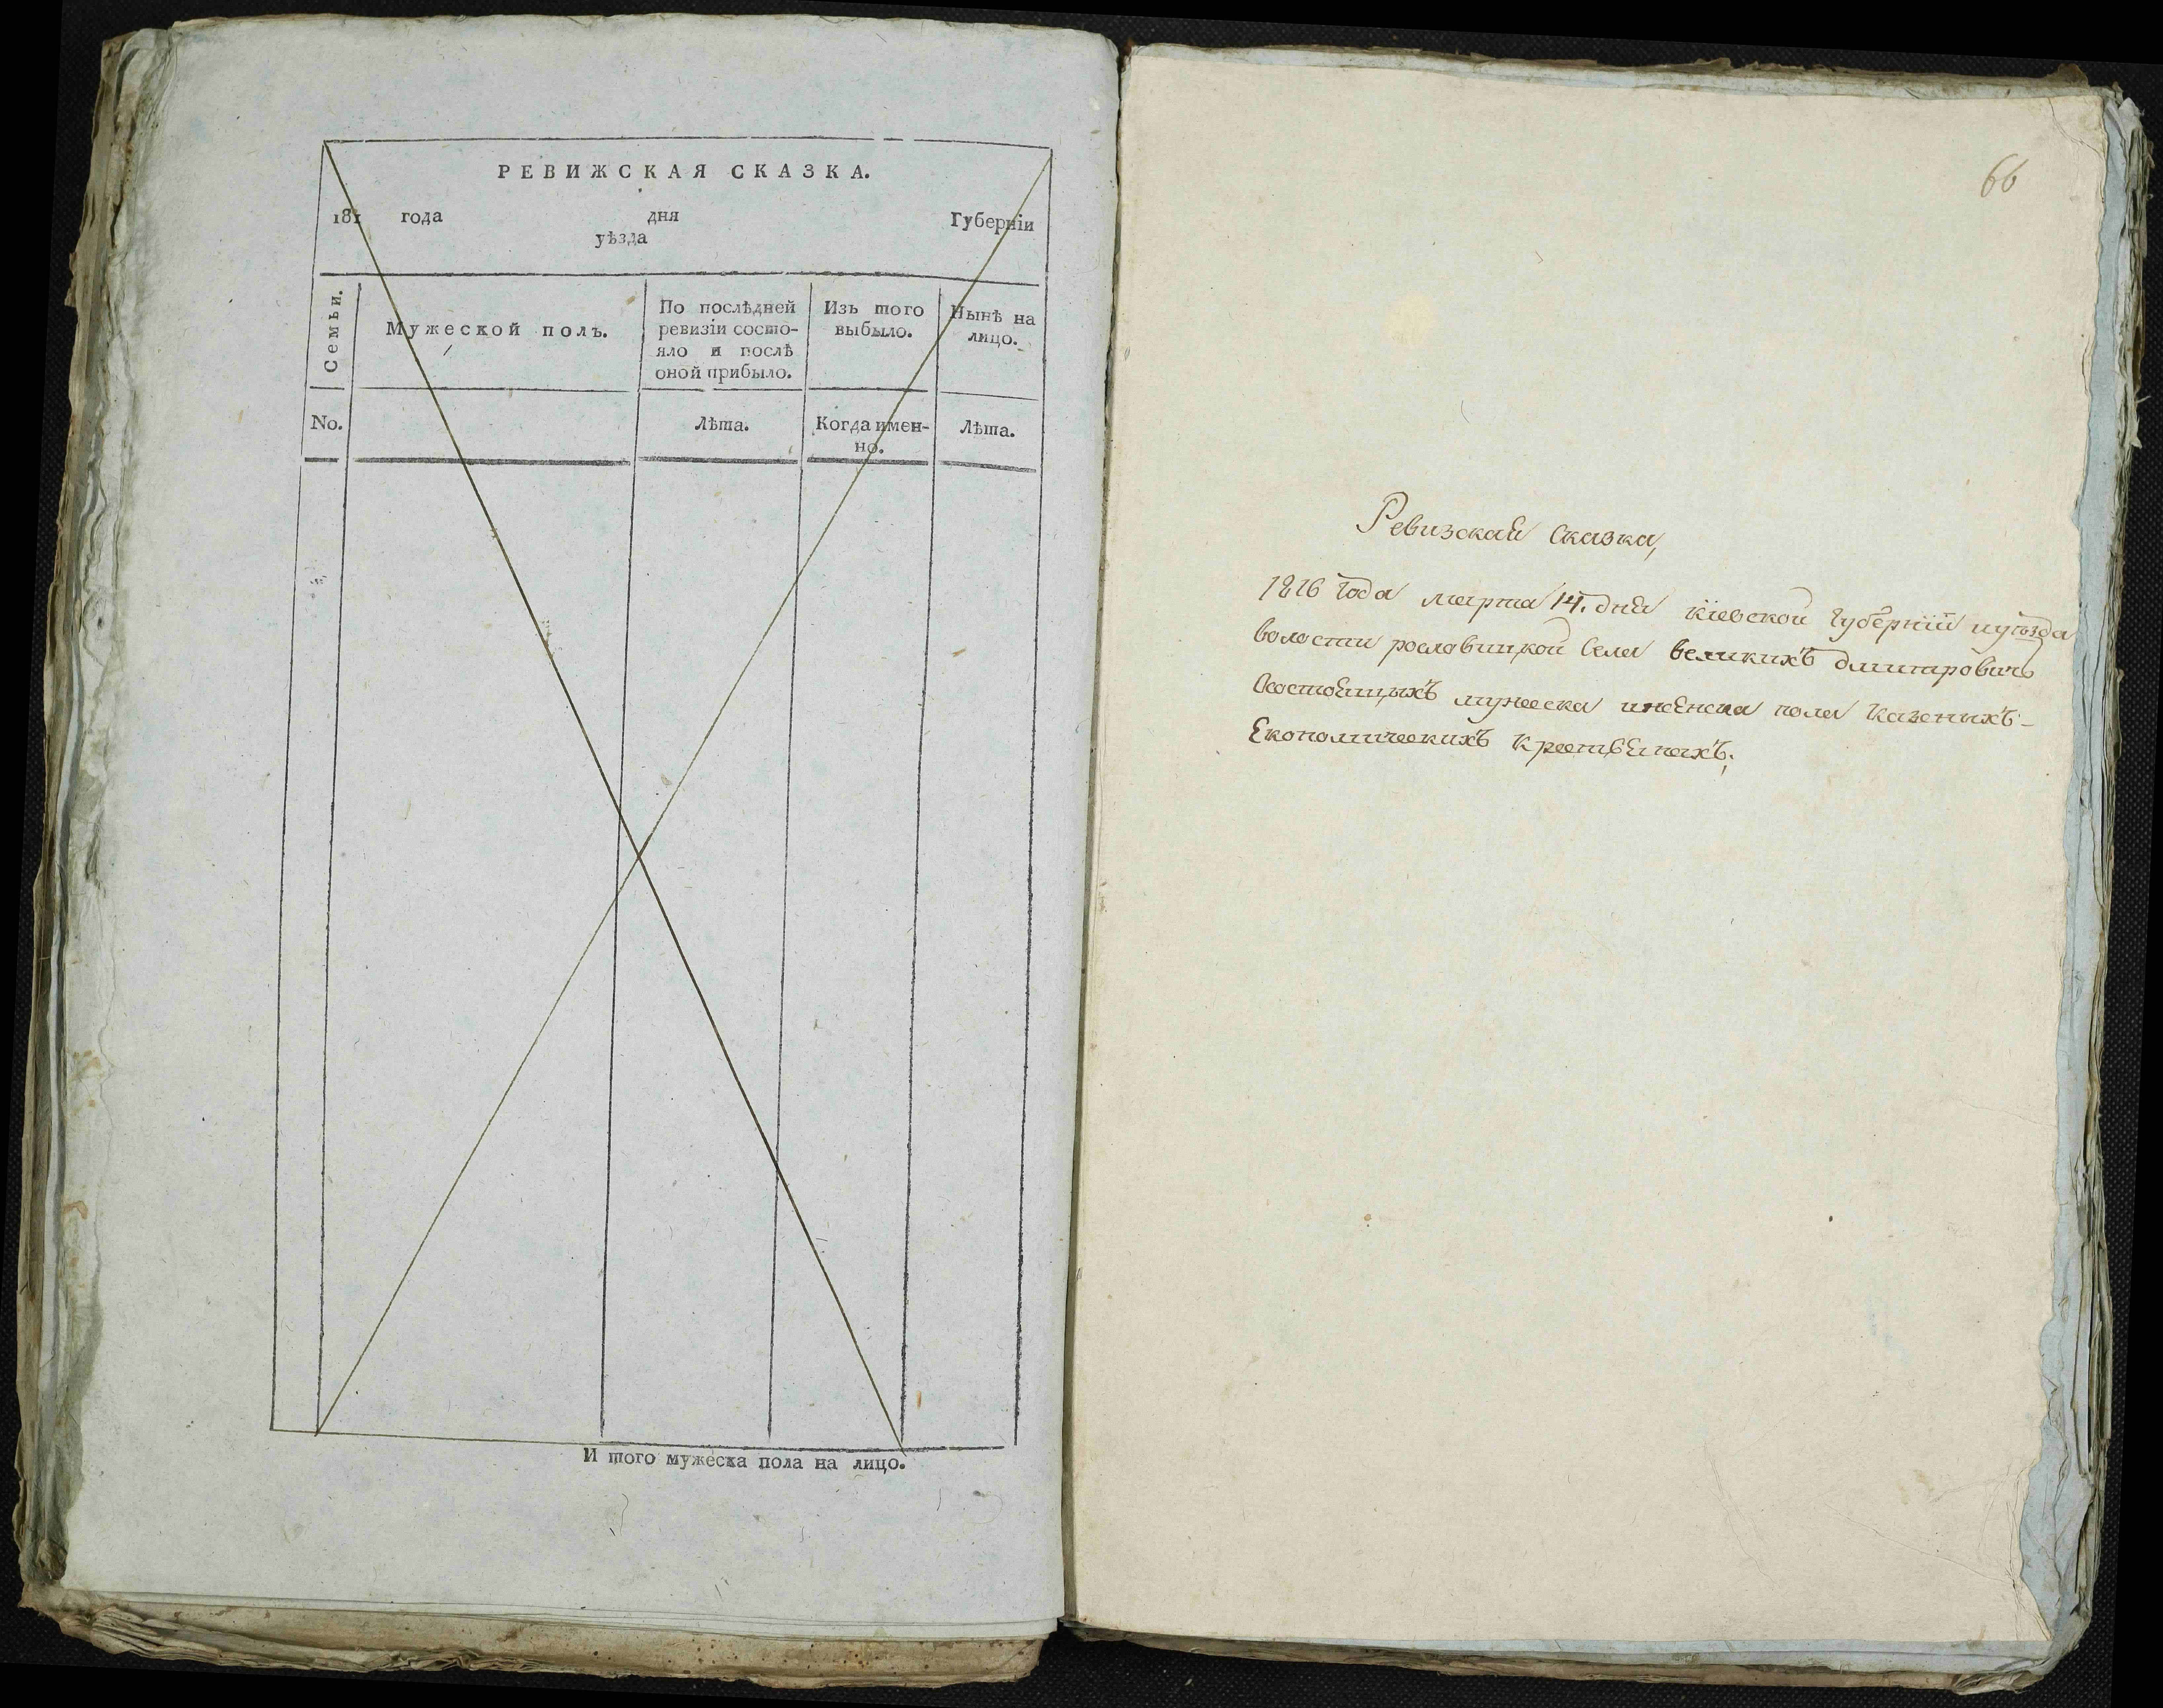 РЕВИЖСКАЯ СКАЗКА.
181 года дня Губерніи
уѣзда
Семьи.
Мужеской полъ.
По послѣдней
ревизіи состо-
яло и послѣ
оной прибыло.
Изъ того
выбыло.
Нынѣ на
лицо.
No.
Лѣта.
Когда имен-
но.
Лѣта.
И того мужеска пола на лицо.
66
Ревизская Сказка,
1816 года марта 14. дня Кіевской Губерніи иуѣзда
волости рославицкой Села великихъ дмитровичъ
Осостоящихъ мужеска иженска пола Казенихъ-
Економическихъ крестьянахъ;